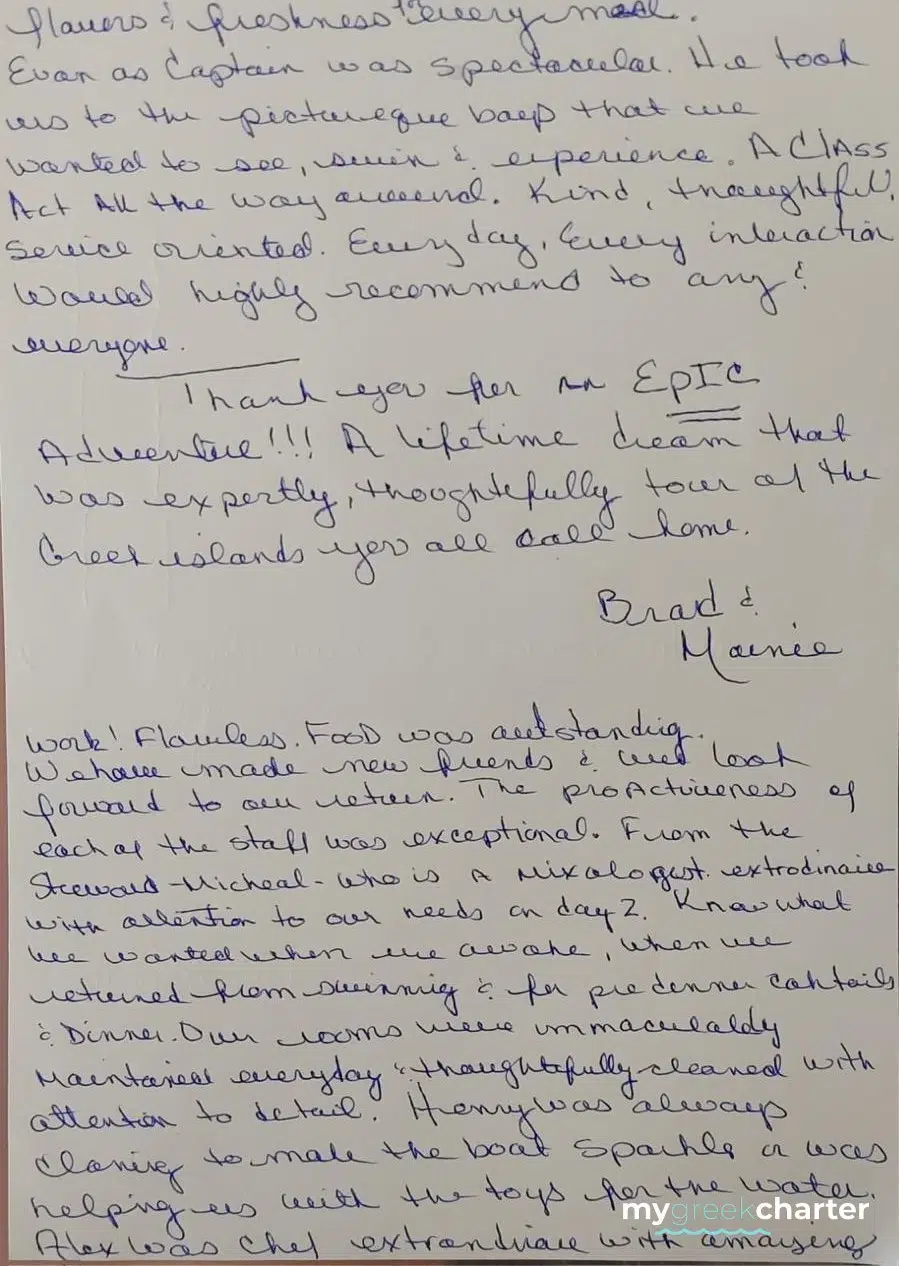 flavors & freshness every meal.
Evan as Captain was spectacular. He took
us to the pictureque bays that we
wanted to see, swim & experience. A ClASS
Act All the way around. Kind, thoughtful,
Service oriented. Every day, Every interaction
Would highly recommend to any &
everyone.
Thank you for an EpIC
Adventure!!! A lifetime dream that
was expertly, thoughtefully tour of the
Greek islands you all call home.
Brad &
Marnie
Work! Flawless. FooD was outstanding.
We have made new friends & will look
forward to our return. The proActiveness of
each of the staff was exceptional. From the
Steward - Micheal - who is A Mixologist extrodinaire
with attention to our needs on day 2. Know what
we wanted when we awoke, when we
returned from swimmig & for predinner coktails
& Dinner. Our rooms were immaculaldy
Maintained everyday & thoughtefully cleaned with
attention to detail. Henry was always
claning to make the boat sparkle or was
helping us with the toys for the water.
Alex was chef extrandinaire with amazing
mygreekcharter